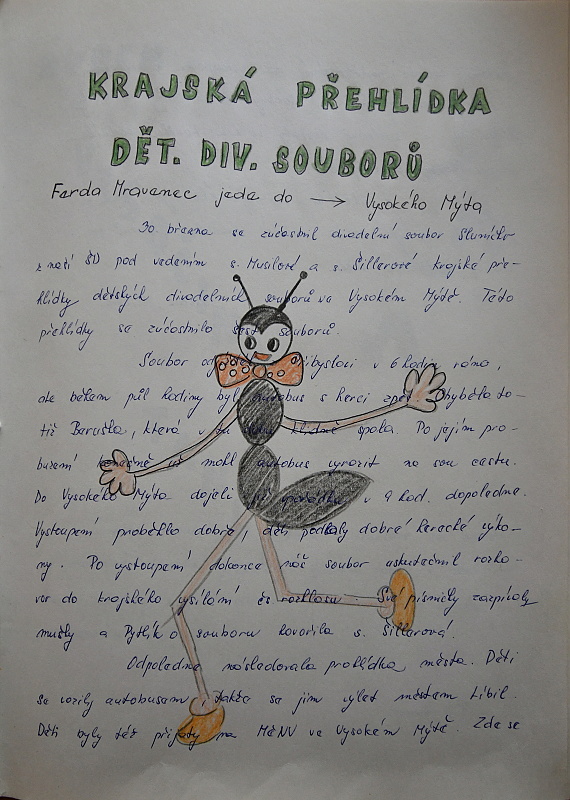 KRAJSKÁ PŘEHLÍDKA
DĚT. DIV. SOUBORŮ
Ferda Mravenec jede do → Vysokého Mýta
30. března se zúčastnil divadelní soubor Sluníčko
z naší ŠD pod vedením s. Musilové a s. Šillerové krajské pře-
hlídky dětských divadelních souborů ve Vysokém Mýtě. Této
přehlídky se zúčastnilo šest souborů.
Soubor Přibyslavi v 6 hodin ráno,
ale během půl hodiny byl autobus s herci zpět. Chyběla to-
tiž Beruška, která v klidně spala. Po jejím pro-
buzení konečně už mohl autobus vyrazit na svou cestu.
Do Vysokého Mýta dojeli již v 9 hod. dopoledne.
Vystoupení proběhlo dobře, děti podaly dobré herecké výko-
ny. Po vystoupení dokonce náš soubor uskutečnil rozho-
vor do krajského vysílání čs. rozhlasu. Své písničky zazpívaly
mušky a Pytlík o souboru hovořila s. Šillerová.
Odpoledne následovala prohlídka města. Děti
se vozily autobusem, takže se jim výlet městem líbil.
Děti byly též přijaty na MěNV ve Vysokém Mýtě. Zde se